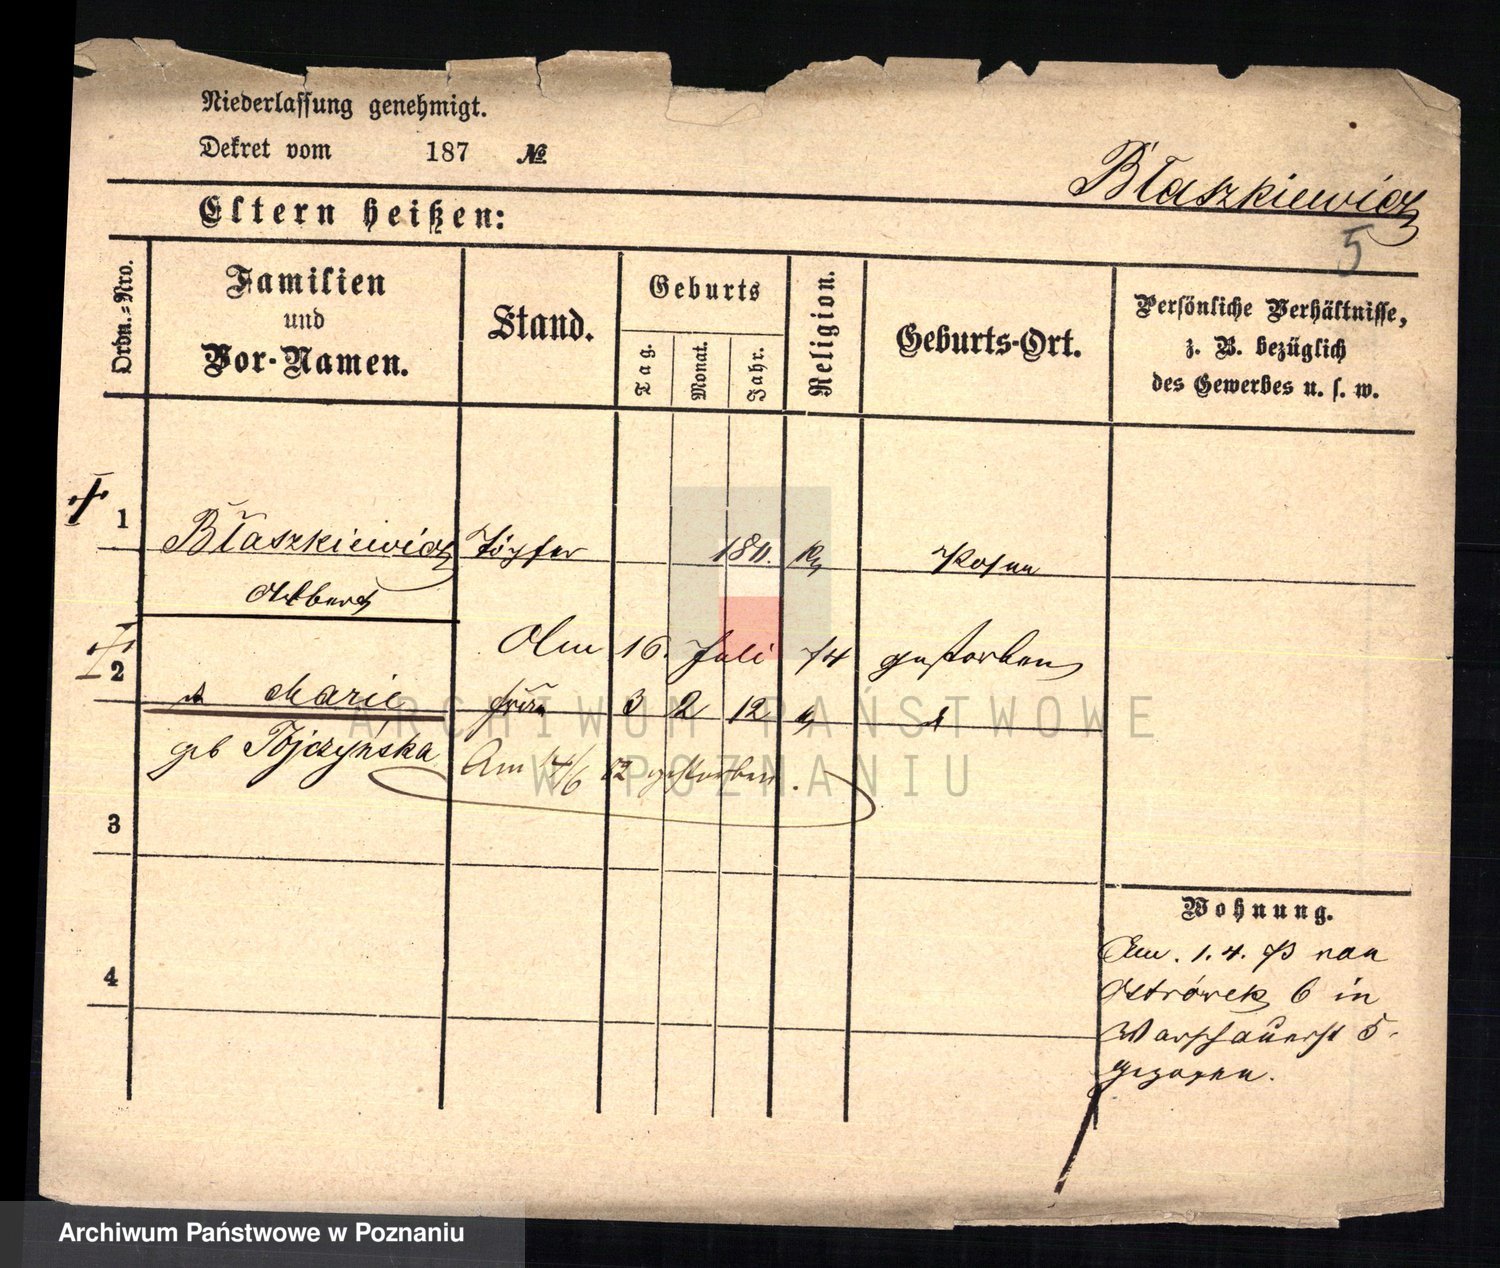 Niederlassung genehmigt.
Dekret vom 187 №
Błaszkiewicz
Eltern heißen:
5
Ordn.-Nro.
Familien
und
Vor-Namen.
Stand.
Geburts
Tag.
Monat.
Jahr.
Religion.
Geburts-Ort.
Persönliche Verhältnisse,
z. B. bezüglich
des Gewerbes u. s. w.
† 1
Błaszkiewicz Töpfer 1811. Posen
Albert
Am 16. Juli 74 gestorben
† 2
Marie 3 2 12
geb
Am 14/6 82 gestorben.
3
4
Wohnung.
Am. 1.4. 73 von
Ostrówek 6 in
Warschauerst 5.
gezogen.
ARCHIWUM PAŃSTWOWE
W POZNANIU
Archiwum Państwowe w Poznaniu